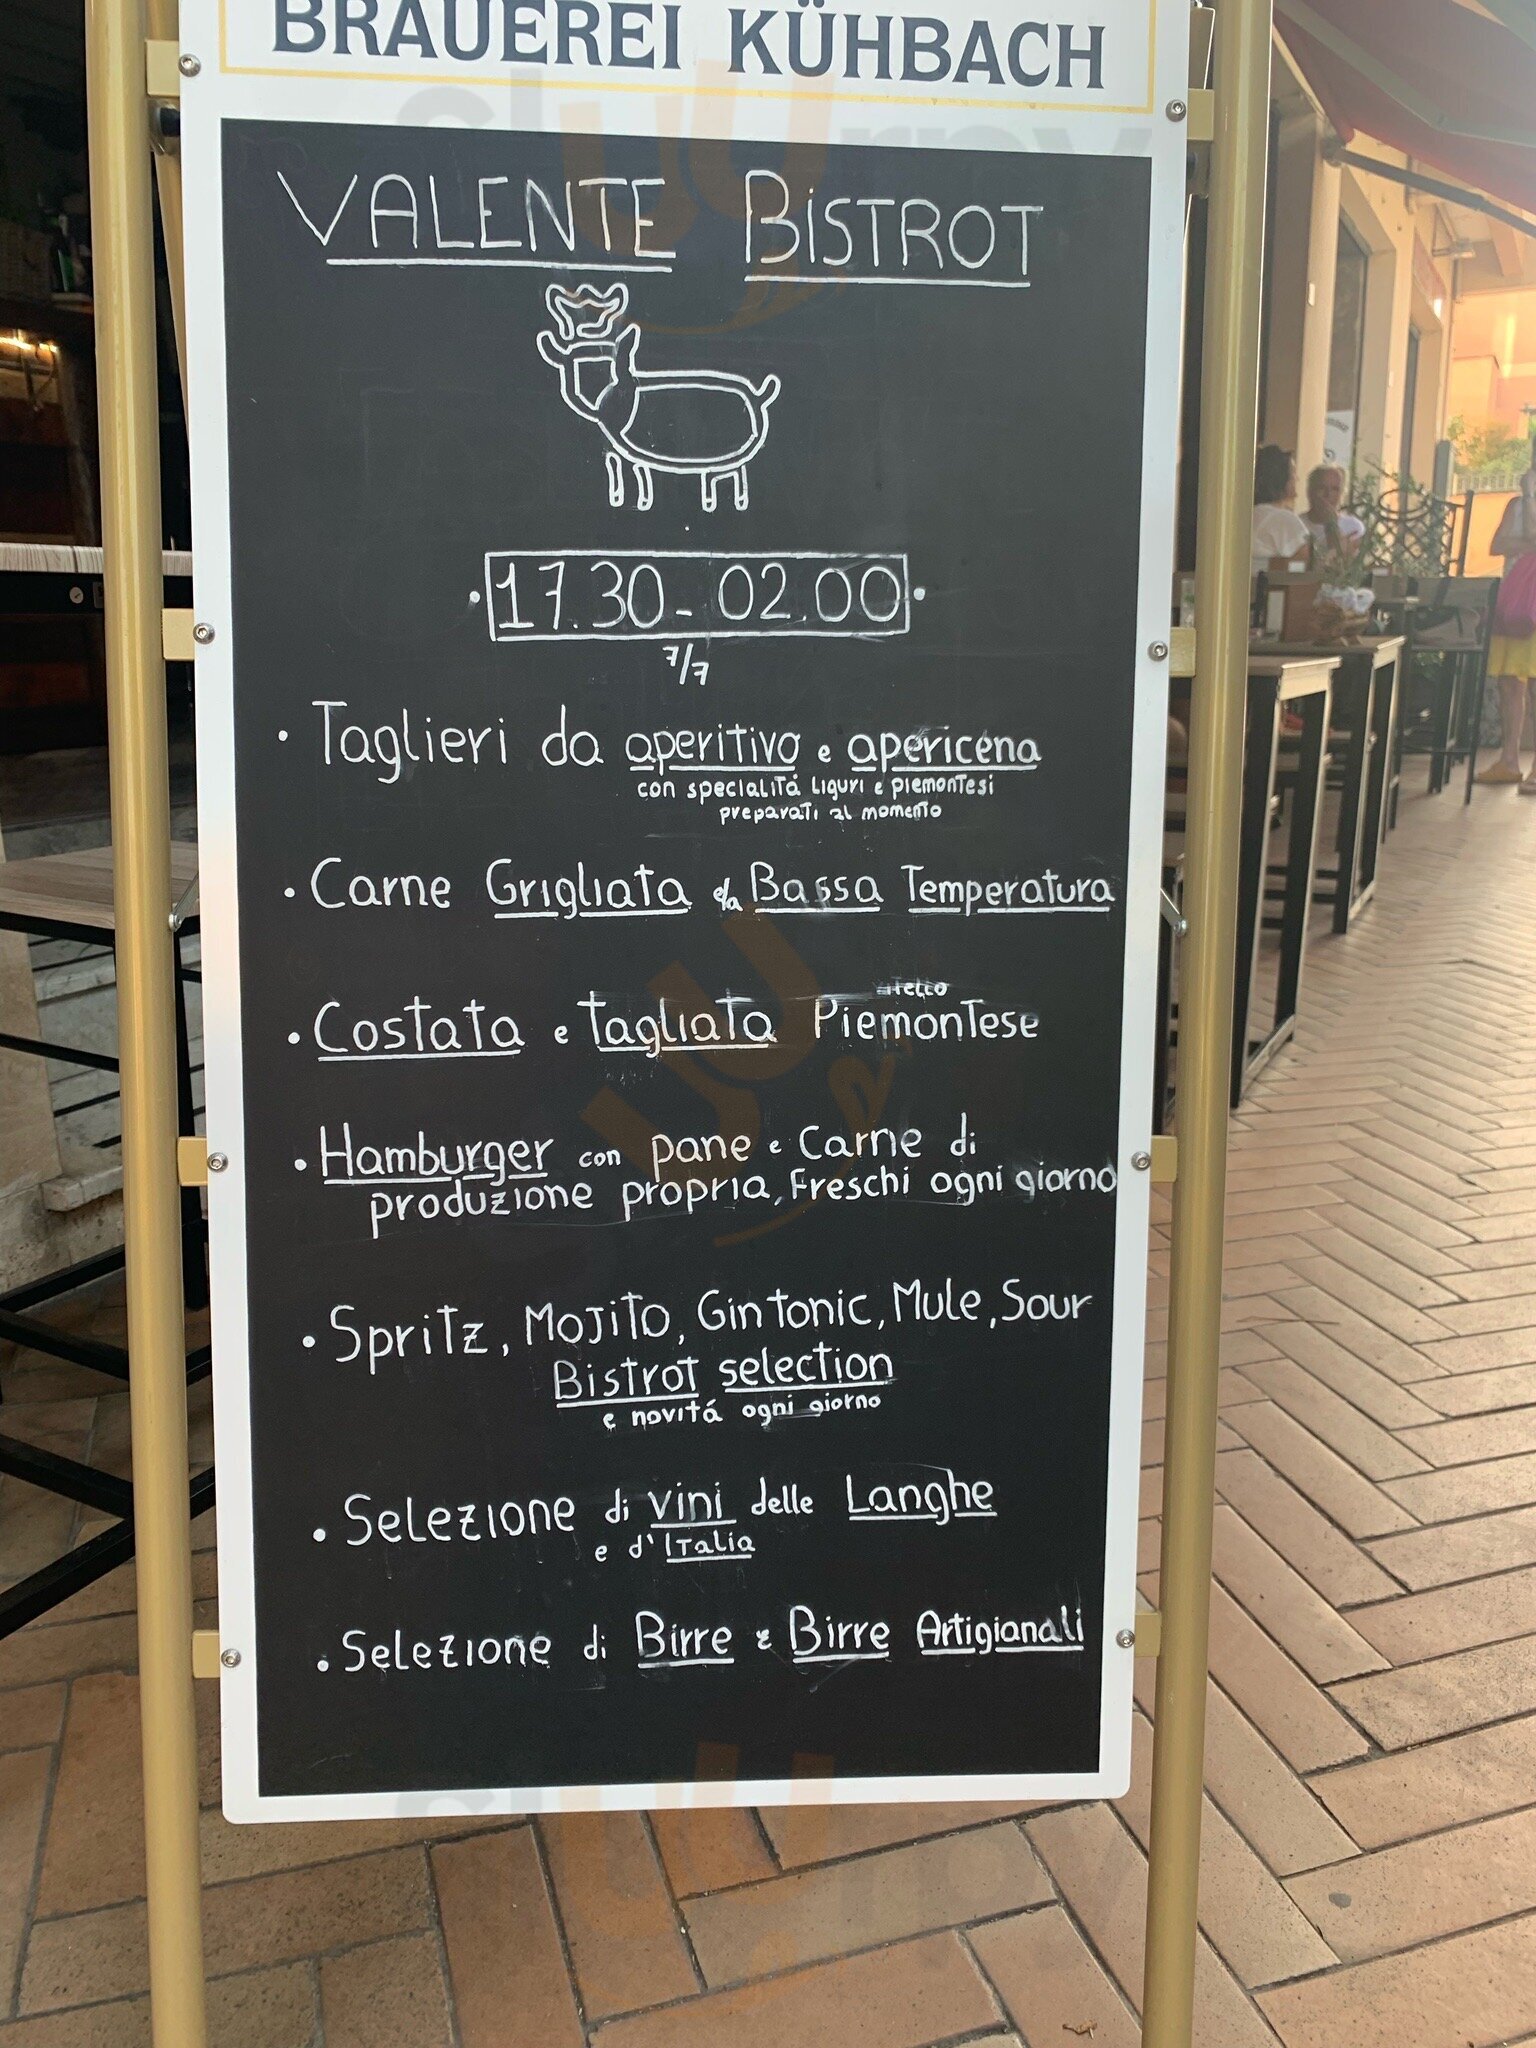 BRAUEREI KÜHBACH
VALENTE BiSTROT
17.30 - 02.00
7/7
• Taglieri da aperitivo e apericena
con specialitá liguri e piemontesi
preparati al momento
• Carne Grigliata e/a Bassa Temperatura
• Costata e Tagliata Piemontese
• Hamburger con pane e Carne di
produzione propria, Freschi ogni giorno
• Spritz, Mojito, Gin tonic, Mule, Sour
Bistrot selection
e novitá ogni giorno
• Selezione di vini delle Langhe
e d'Italia
• Selezione di Birre e Birre Artigianali